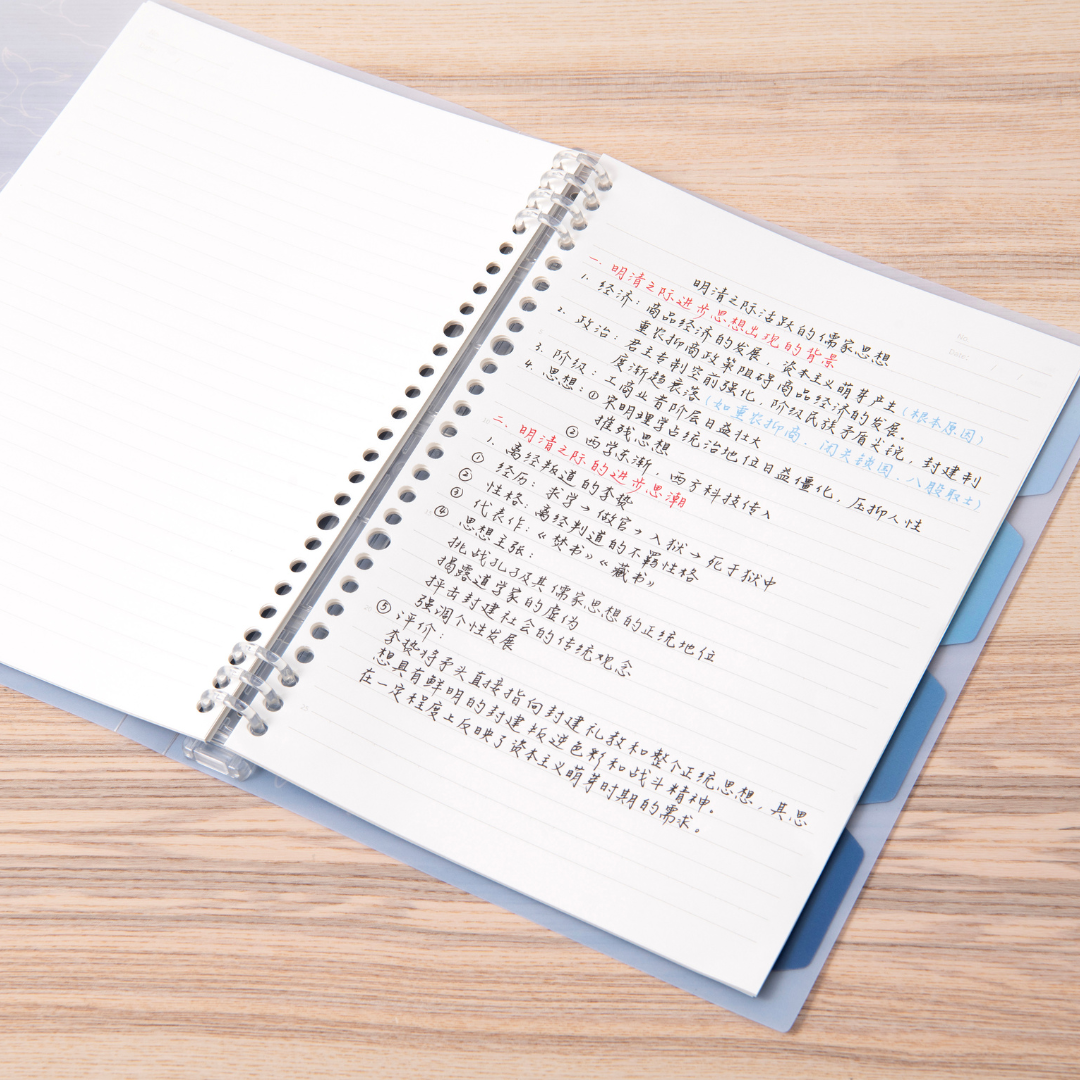 明清之际活跃的儒家思想
一、明清之际进步思想出现的背景
1. 经济：商品经济的发展，资本主义萌芽产生(根本原因)
重农抑商政策阻碍商品经济的发展。
2. 政治：君主专制空前强化，阶级民族矛盾尖锐，封建制
度渐趋衰落(如重农抑商、闭关锁国、八股取士)
3. 阶级：工商业者阶层日益壮大
4. 思想：①宋明理学占统治地位日益僵化，压抑人性
摧残思想
②西学东渐，西方科技传入
二、明清之际的进步思潮
1. 离经叛道的李贽
① 经历：求学→做官→入狱→死于狱中
② 性格：离经判道的不羁性格
③ 代表作：《焚书》《藏书》
④ 思想主张：
挑战孔子及其儒家思想的正统地位
揭露道学家的虚伪
抨击封建社会的传统观念
强调个性发展
⑤ 评价：
李贽将矛头直接指向封建礼教和整个正统思想，其思
想具有鲜明的封建叛逆色彩和战斗精神。
在一定程度上反映了资本主义萌芽时期的需求。